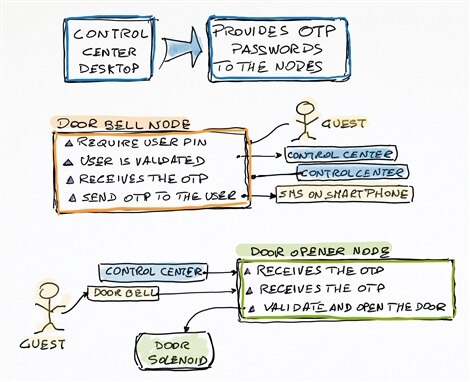 CONTROL
CENTER
DESKTOP
PROVIDES OTP
PASSWORDS
TO THE NODES
DOOR BELL NODE
REQUIRE USER PIN
USER IS VALIDATED
RECEIVES THE OTP
SEND OTP TO THE USER
GUEST
CONTROL CENTER
CONTROL CENTER
SMS ON SMARTPHONE
DOOR OPENER NODE
CONTROL CENTER
DOOR BELL
RECEIVES THE OTP
RECEIVES THE OTP
VALIDATE AND OPEN THE DOOR
GUEST
DOOR
SOLENOID